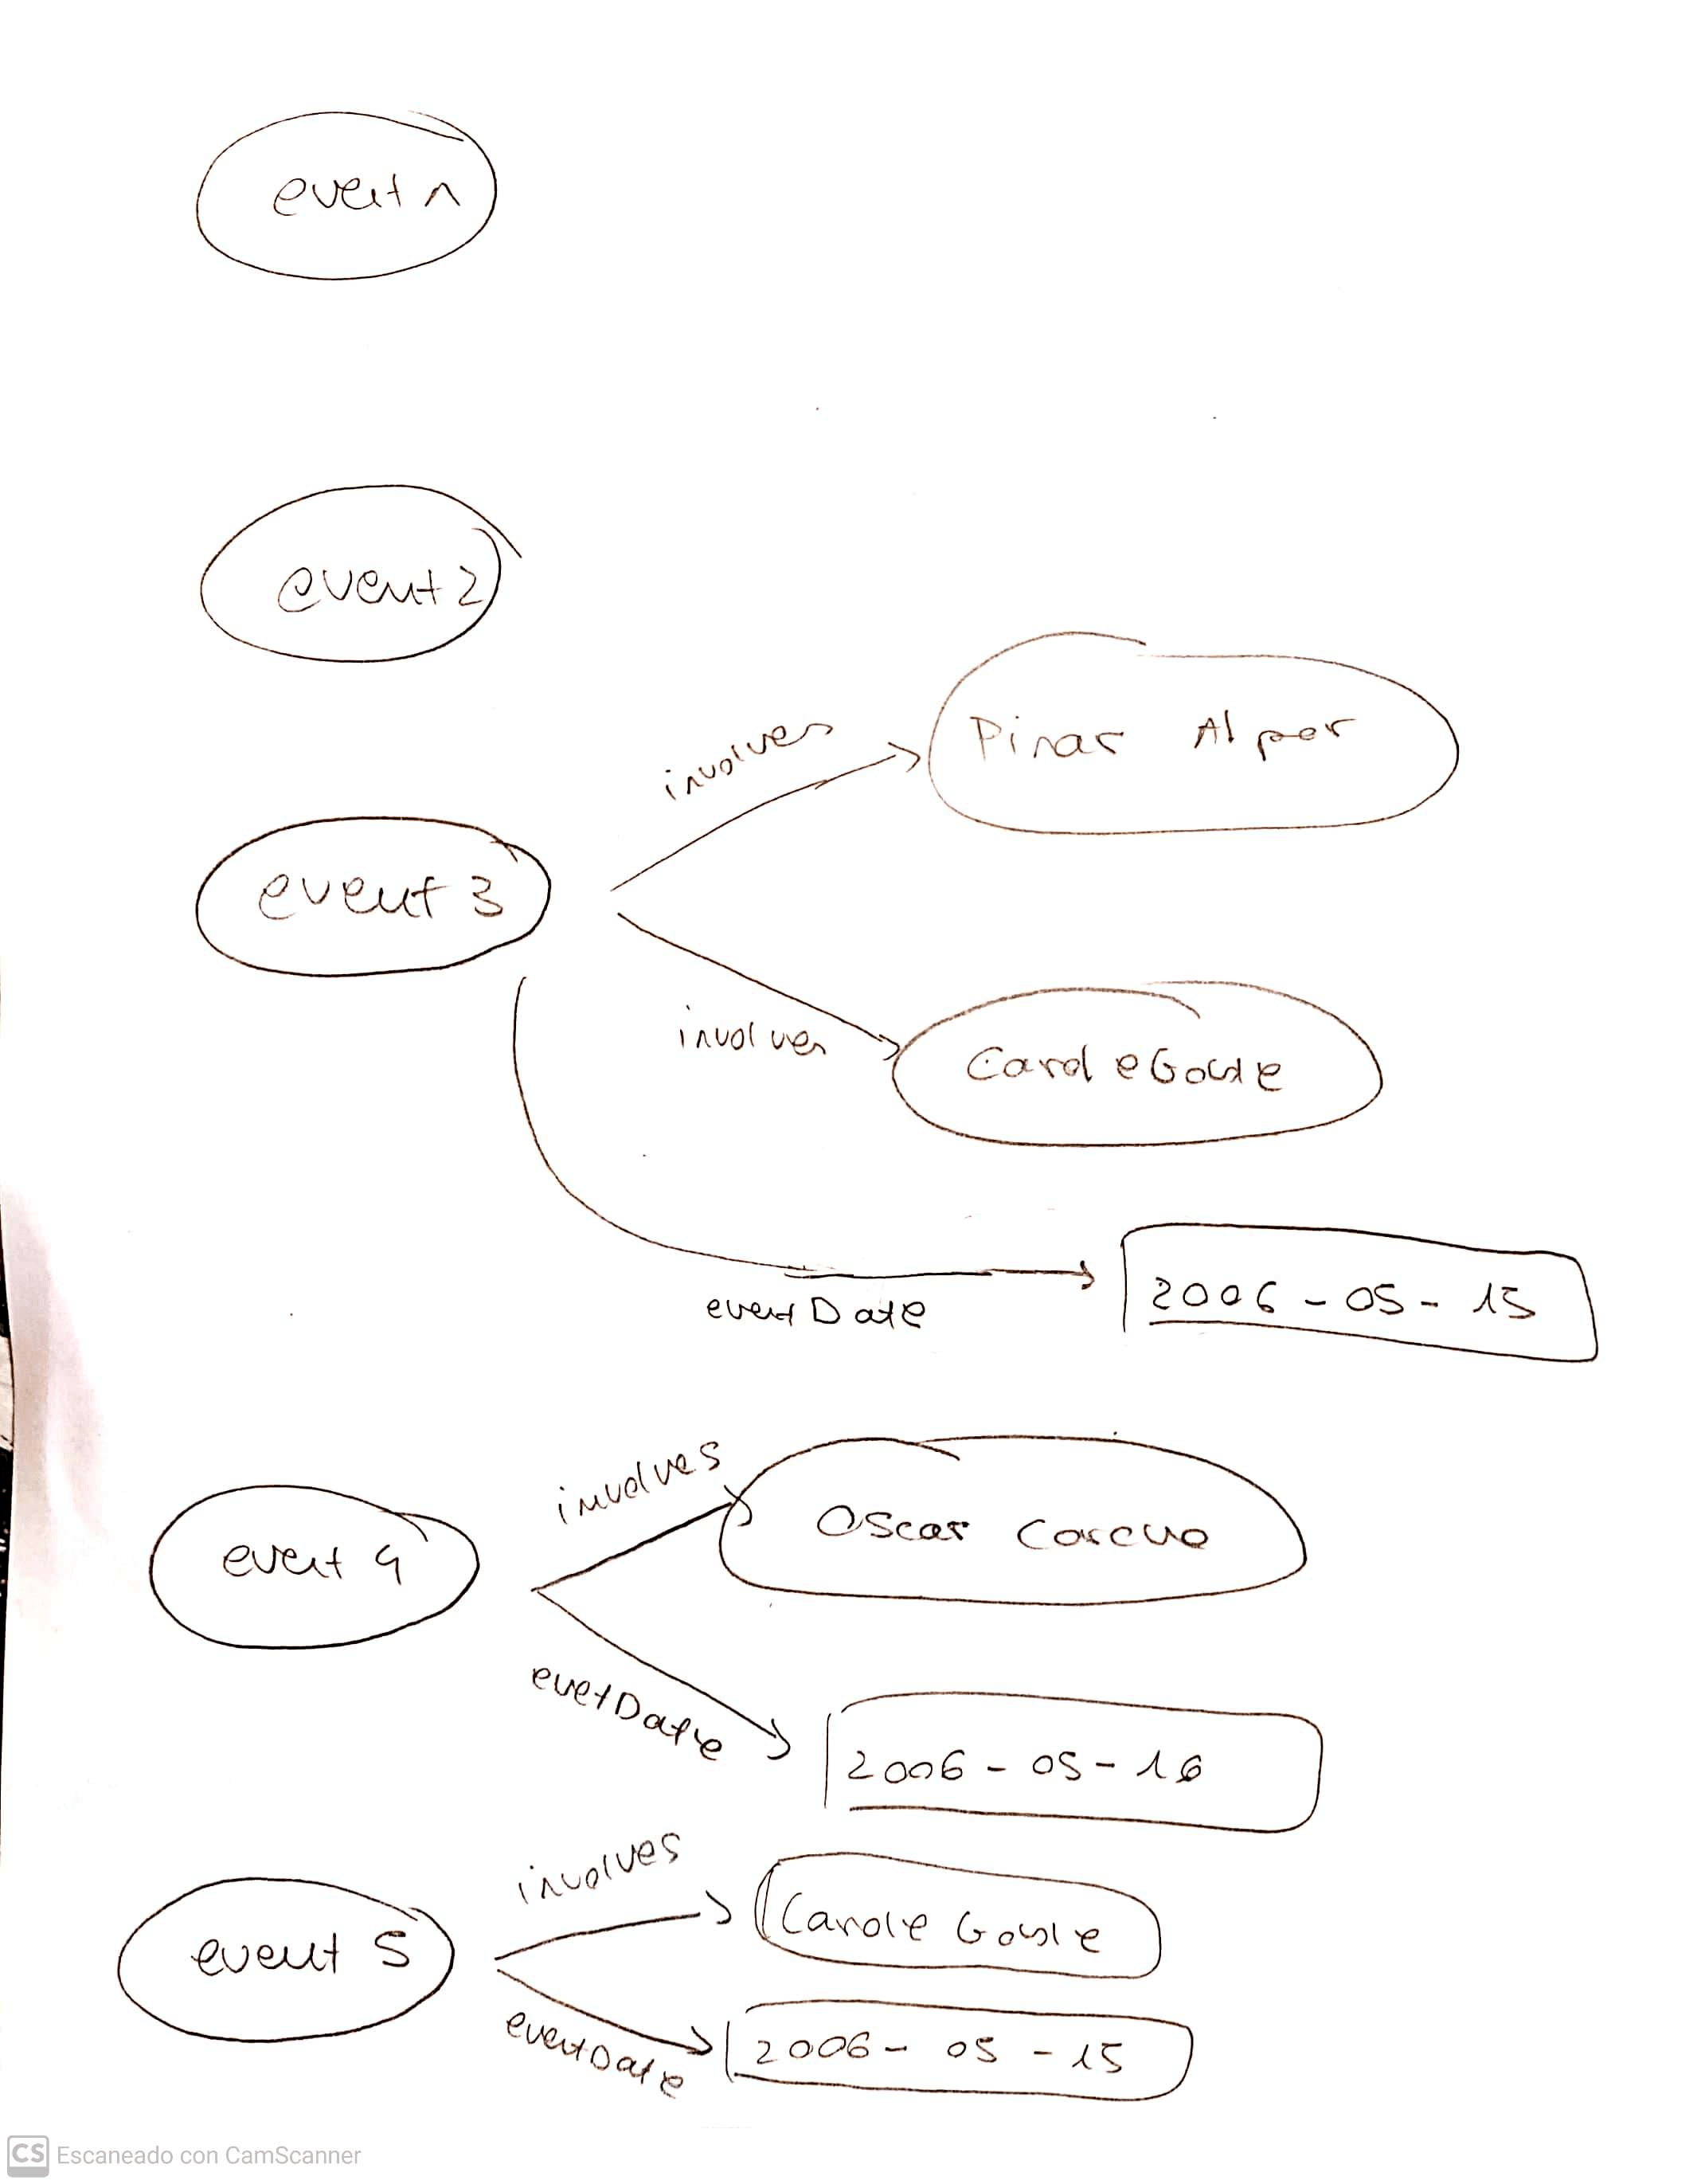 event 1
event 2
involves
Pinar Alper
event 3
involves
Carole Goble
eventDate
2006 - 05 - 15
involves
Oscar Corcho
event 4
evetDate
2006 - 05 - 16
involves
Carole Goble
event 5
eventDate
2006 - 05 - 15
CS Escaneado con CamScanner